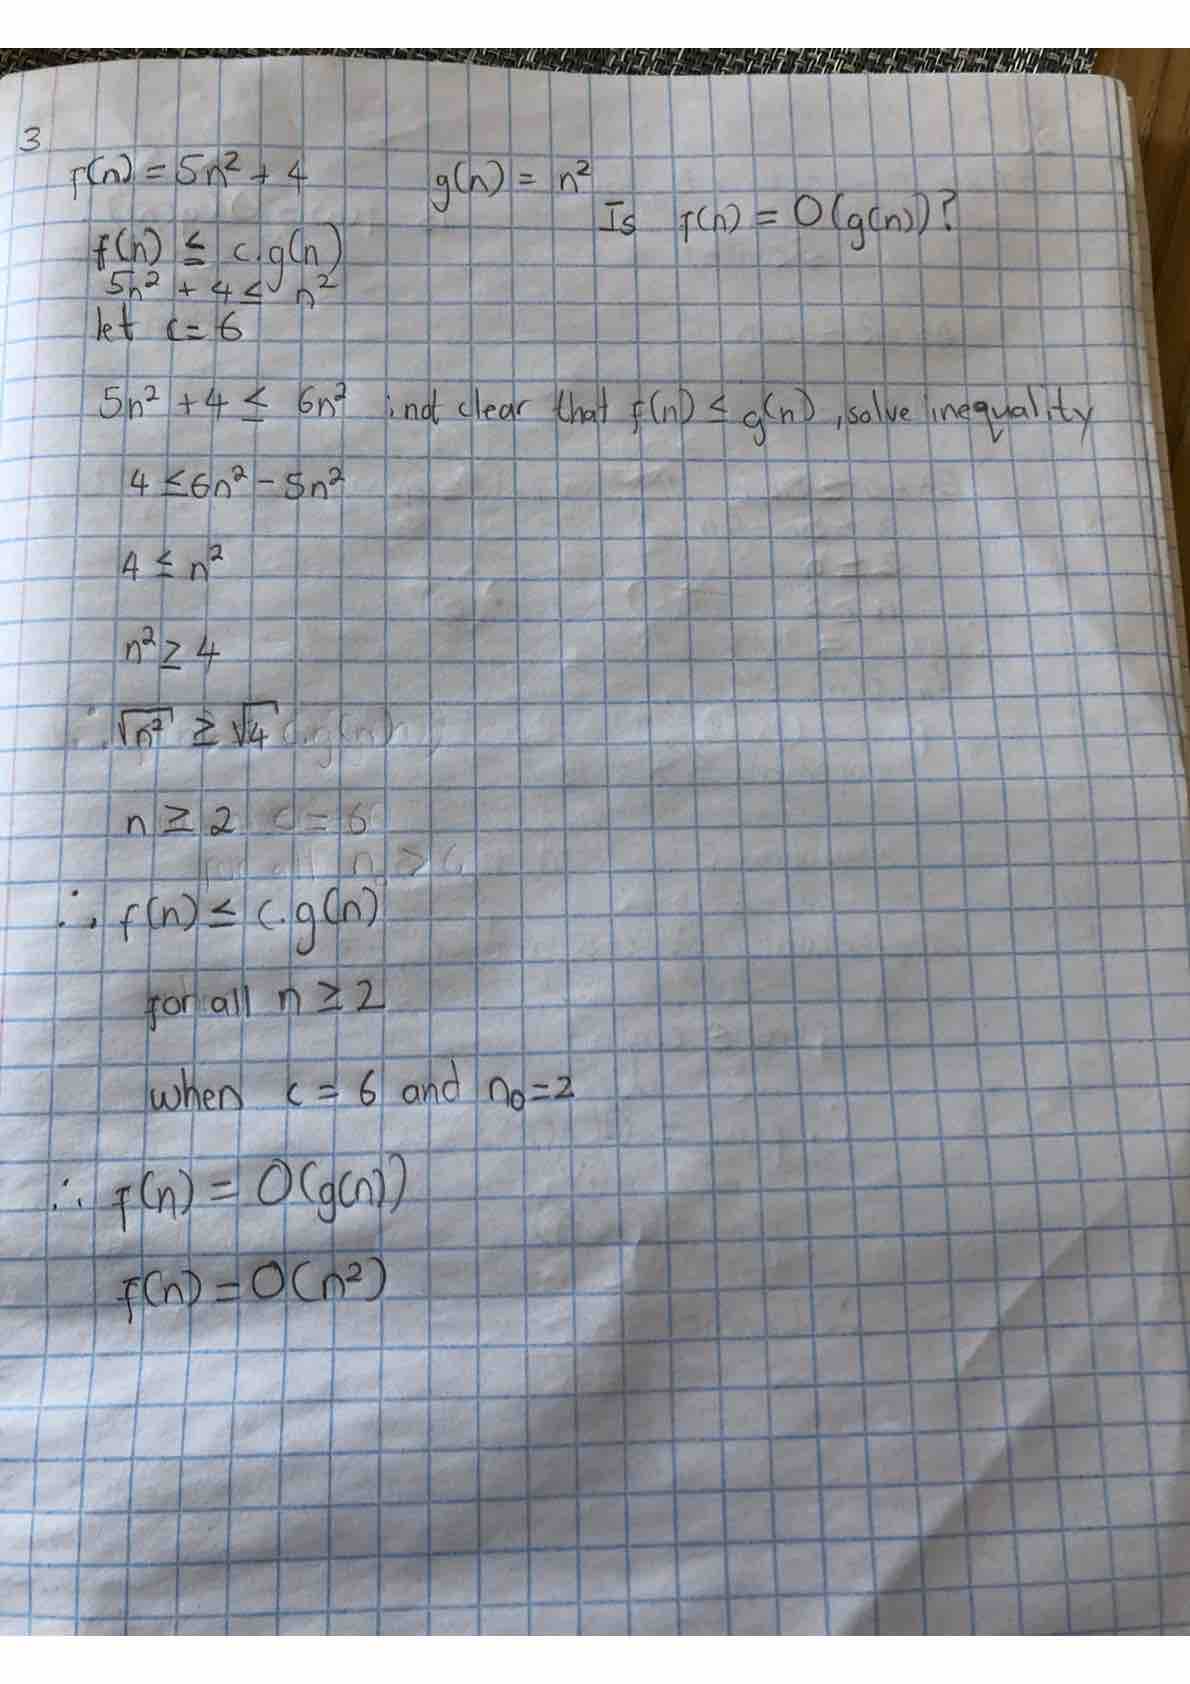 3
f(n) = 5n² + 4 g(n) = n²
Is f(n) = O(g(n))?
f(n) ≤ c.g(n)
5n² + 4 ≤ n²
let c = 6
5n² + 4 ≤ 6n² not clear that f(n) ≤ g(n), solve inequality
4 ≤ 6n² - 5n²
4 ≤ n²
n² ≥ 4
∴ √n² ≥ √4 c.g(n)
n ≥ 2 c = 6
for all n ≥
∴ f(n) ≤ c.g(n)
for all n ≥ 2
when c = 6 and n₀ = 2
∴ f(n) = O(g(n))
f(n) = O(n²)